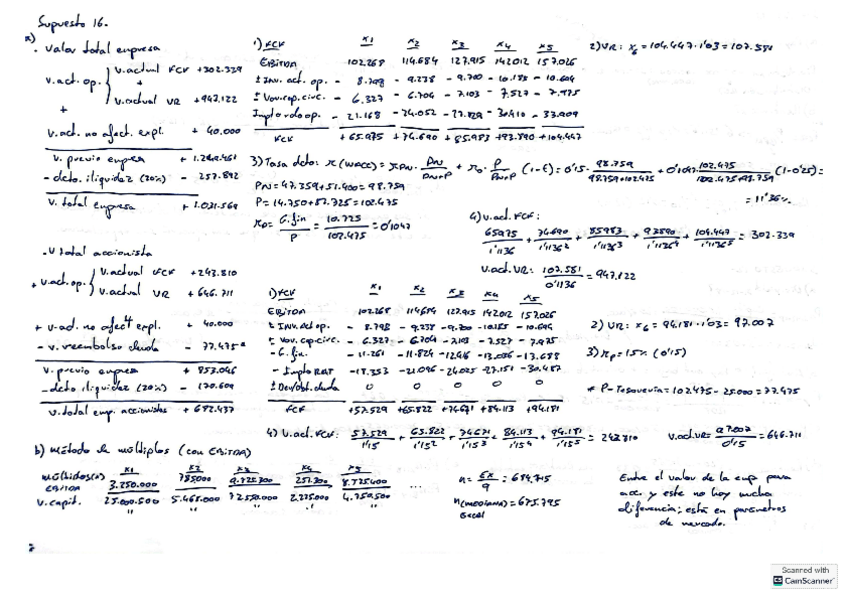 Supuesto 16.
a)
· Valor total empresa
V.act.op. V.actual FCF +302.339
+
V.actual VR +947.122
+
V.act. no afect. expl. + 40.000
V. previo empresa
- dcto. iliquidez (20%) - 257.892
V. total empresa + 1.031.569
1) FCF x1 x2 x3 x4 x5
EBITDA 102.268 114.684 127.915 142.012 157.026
± Inv. act. op. - 8.798 - 9.238 - 9.700 - 10.185 - 10.694
± Var. cap. circ. - 6.327 - 6.704 - 7.103 - 7.527 - 7.975
- 21.168 - 24.052
FCF + 65.975 + 74.690 + 85.983 + 93.890 + 104.447
2) VR: x6 = 104.447 · 1'03 = 107.581
3) Tasa dcto: r (WACC) = rPN · PN/PN+P + rD · P/PN+P (1-t) = 0'15 · 98.759/98.759+102.475 + 0'1047 · 102.475/102.475+98.759 (1-0'25) =
= 11'36%
PN = 47.359 + 51.400 = 98.759
P = 14.750 + 87.725 = 102.475
rD = G.fin/P = 10.725/102.475 = 0'1047
4) V.act. FCF:
65975/1'1136 + 74690/1'1136² + 85983/1'1136³ + 93890/1'1136⁴ + 104.447/1'1136⁵ = 302.339
V.act. VR: 107.581/0'1136 = 947.122
· V total accionista
+ V.act.op. V.actual FCF + 243.810
V.actual VR + 646.711
+ V.act. no afect expl. + 40.000
- V. reembolso deuda - 77.475*
V. previo empresa + 853.046
- dcto iliquidez (20%) - 170.609
V. total emp. accionistas + 682.437
1) FCF x1 x2 x3 x4 x5
EBITDA 102.268 114.684 127.915 142.012 157.026
± Inv. act. op. - 8.798 - 9.238 - 9.700 - 10.185 - 10.694
± Var. cap. circ. - 6.327 - 6.704 - 7.103 - 7.527 - 7.975
- G. fin. - 11.261 - 11.824 - 12.416 - 13.036 - 13.688
- Impto RAT - 18.353 - 21.096 - 24.025 - 27.151 - 30.487
± Dev/obt. deuda 0 0 0 0 0
FCF + 57.529 + 65.822 + 74.671 + 84.113 + 94.181
2) VR: x6 = 94.181 · 1'03 = 97.007
3) rP = 15% (0'15)
* P - Tesorería = 102.475 - 25.000 = 77.475
4) V.act. FCF: 57.529/1'15 + 65.822/1'15² + 74.671/1'15³ + 84.113/1'15⁴ + 94.181/1'15⁵ = 243.810
V.act. VR = 97.007/0'15 = 646.711
b) Método de múltiplos (con EBITDA)
x1 x2 x3 x4 x5
EBITDA 3.250.000 785000 9.725.300 257.300 8.725400 ...
V. capit. 25.000.500 5.465.000 72550.000 2.225.000 4.750.500
n = Σx/9 = 684.715
n (mediana) = 675.795
Excel
Entre el valor de la emp para
acc. y este no hay mucha
diferencia; está en parámetros
de mercado.
Scanned with
CS CamScanner